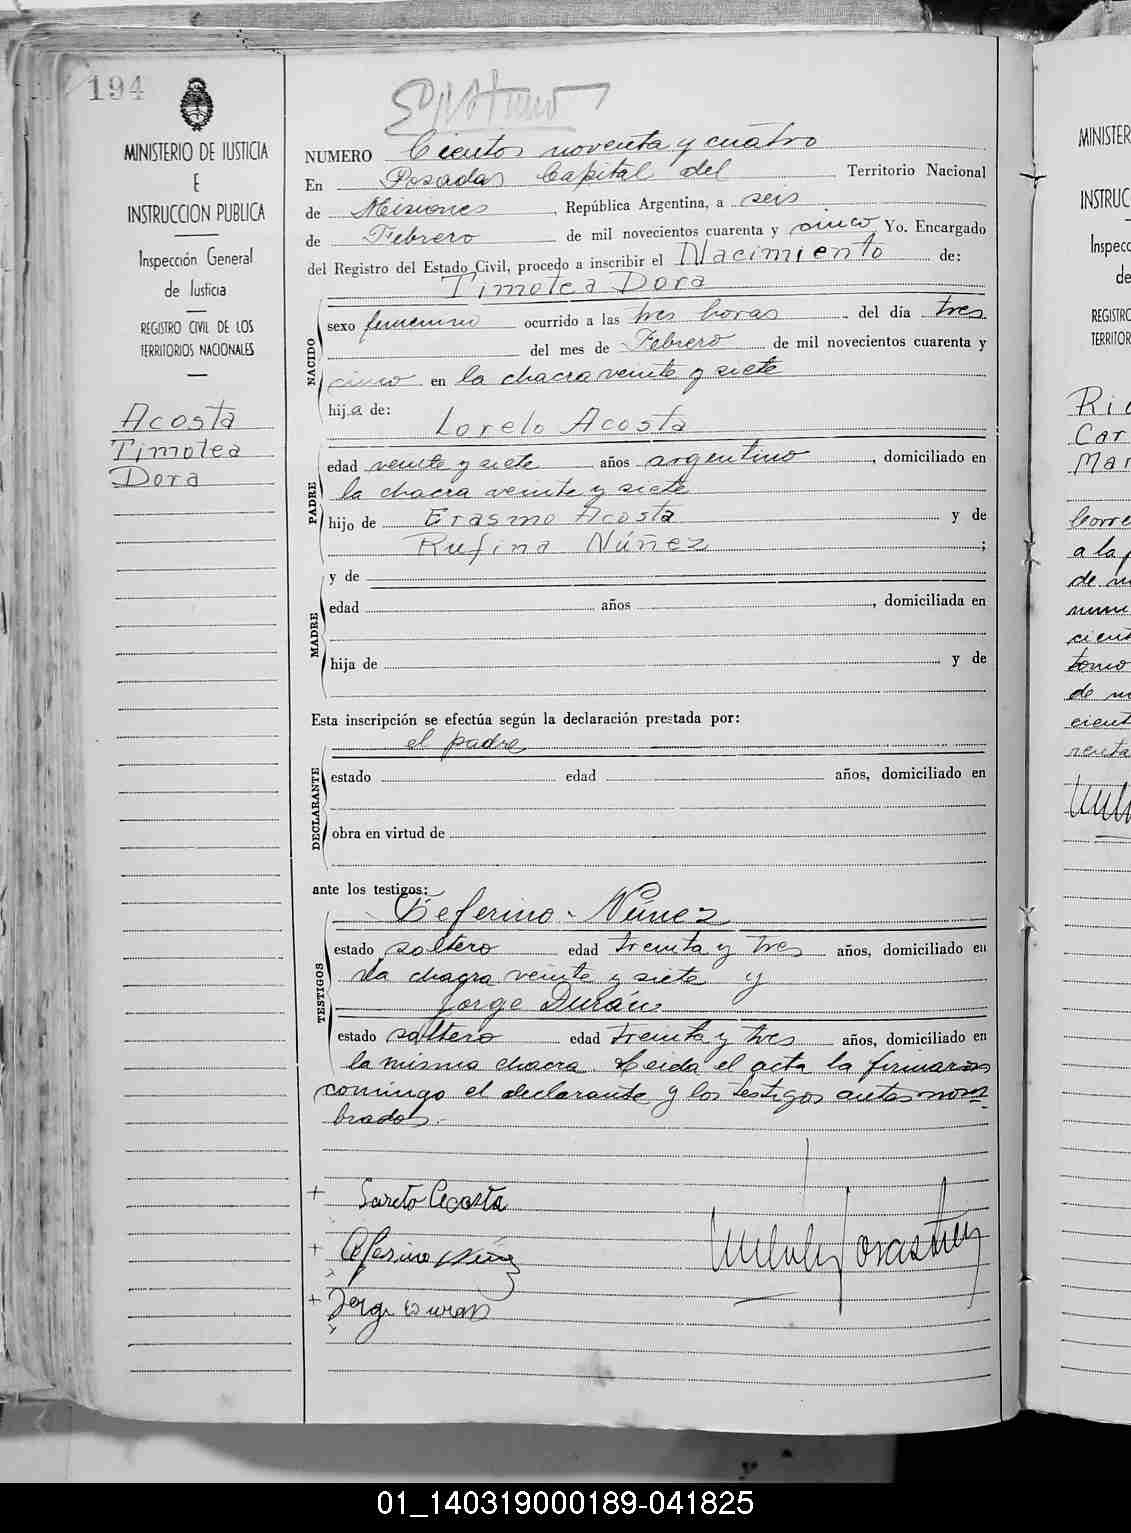 194
MINISTERIO DE JUSTICIA
E
INSTRUCCION PUBLICA
Inspección General
de Justicia
REGISTRO CIVIL DE LOS
TERRITORIOS NACIONALES
Acosta
Timotea
Dora
NUMERO Ciento noventa y cuatro
En Posadas Capital del Territorio Nacional
de Misiones, República Argentina, a seis
de Febrero de mil novecientos cuarenta y cinco Yo. Encargado
del Registro del Estado Civil, procedo a inscribir el Nacimiento de:
Timotea Dora
NACIDO
sexo femenino ocurrido a las tres horas del día tres
del mes de Febrero de mil novecientos cuarenta y
cinco en la chacra veinte y siete
hija de:
Loreto Acosta
PADRE
edad veinte y siete años argentino, domiciliado en
la chacra veinte y siete
hijo de Erasmo Acosta y de
Rufina Núñez ;
y de
MADRE
edad años, domiciliada en
hija de y de
Esta inscripción se efectúa según la declaración prestada por:
el padre
DECLARANTE
estado edad años, domiciliado en
obra en virtud de
ante los testigos:
Ceferino Núnez
TESTIGOS
estado soltero edad treinta y tres años, domiciliado en
la chacra veinte y siete y
Jorge Durán
estado soltero edad treinta y tres años, domiciliado en
la misma chacra. Leida el acta la firmaron
conmigo el declarante y los testigos antes nom-
brados.
+ Loreto Acosta
+ Ceferino Núñez
+ Jorge Duran
MINISTER
INSTRUC
Inspecc
de
REGISTRO
TERRITOR
Ric
Car
Mar
Corre
a la p
de
cient
tomo
de
cient
01_140319000189-041825